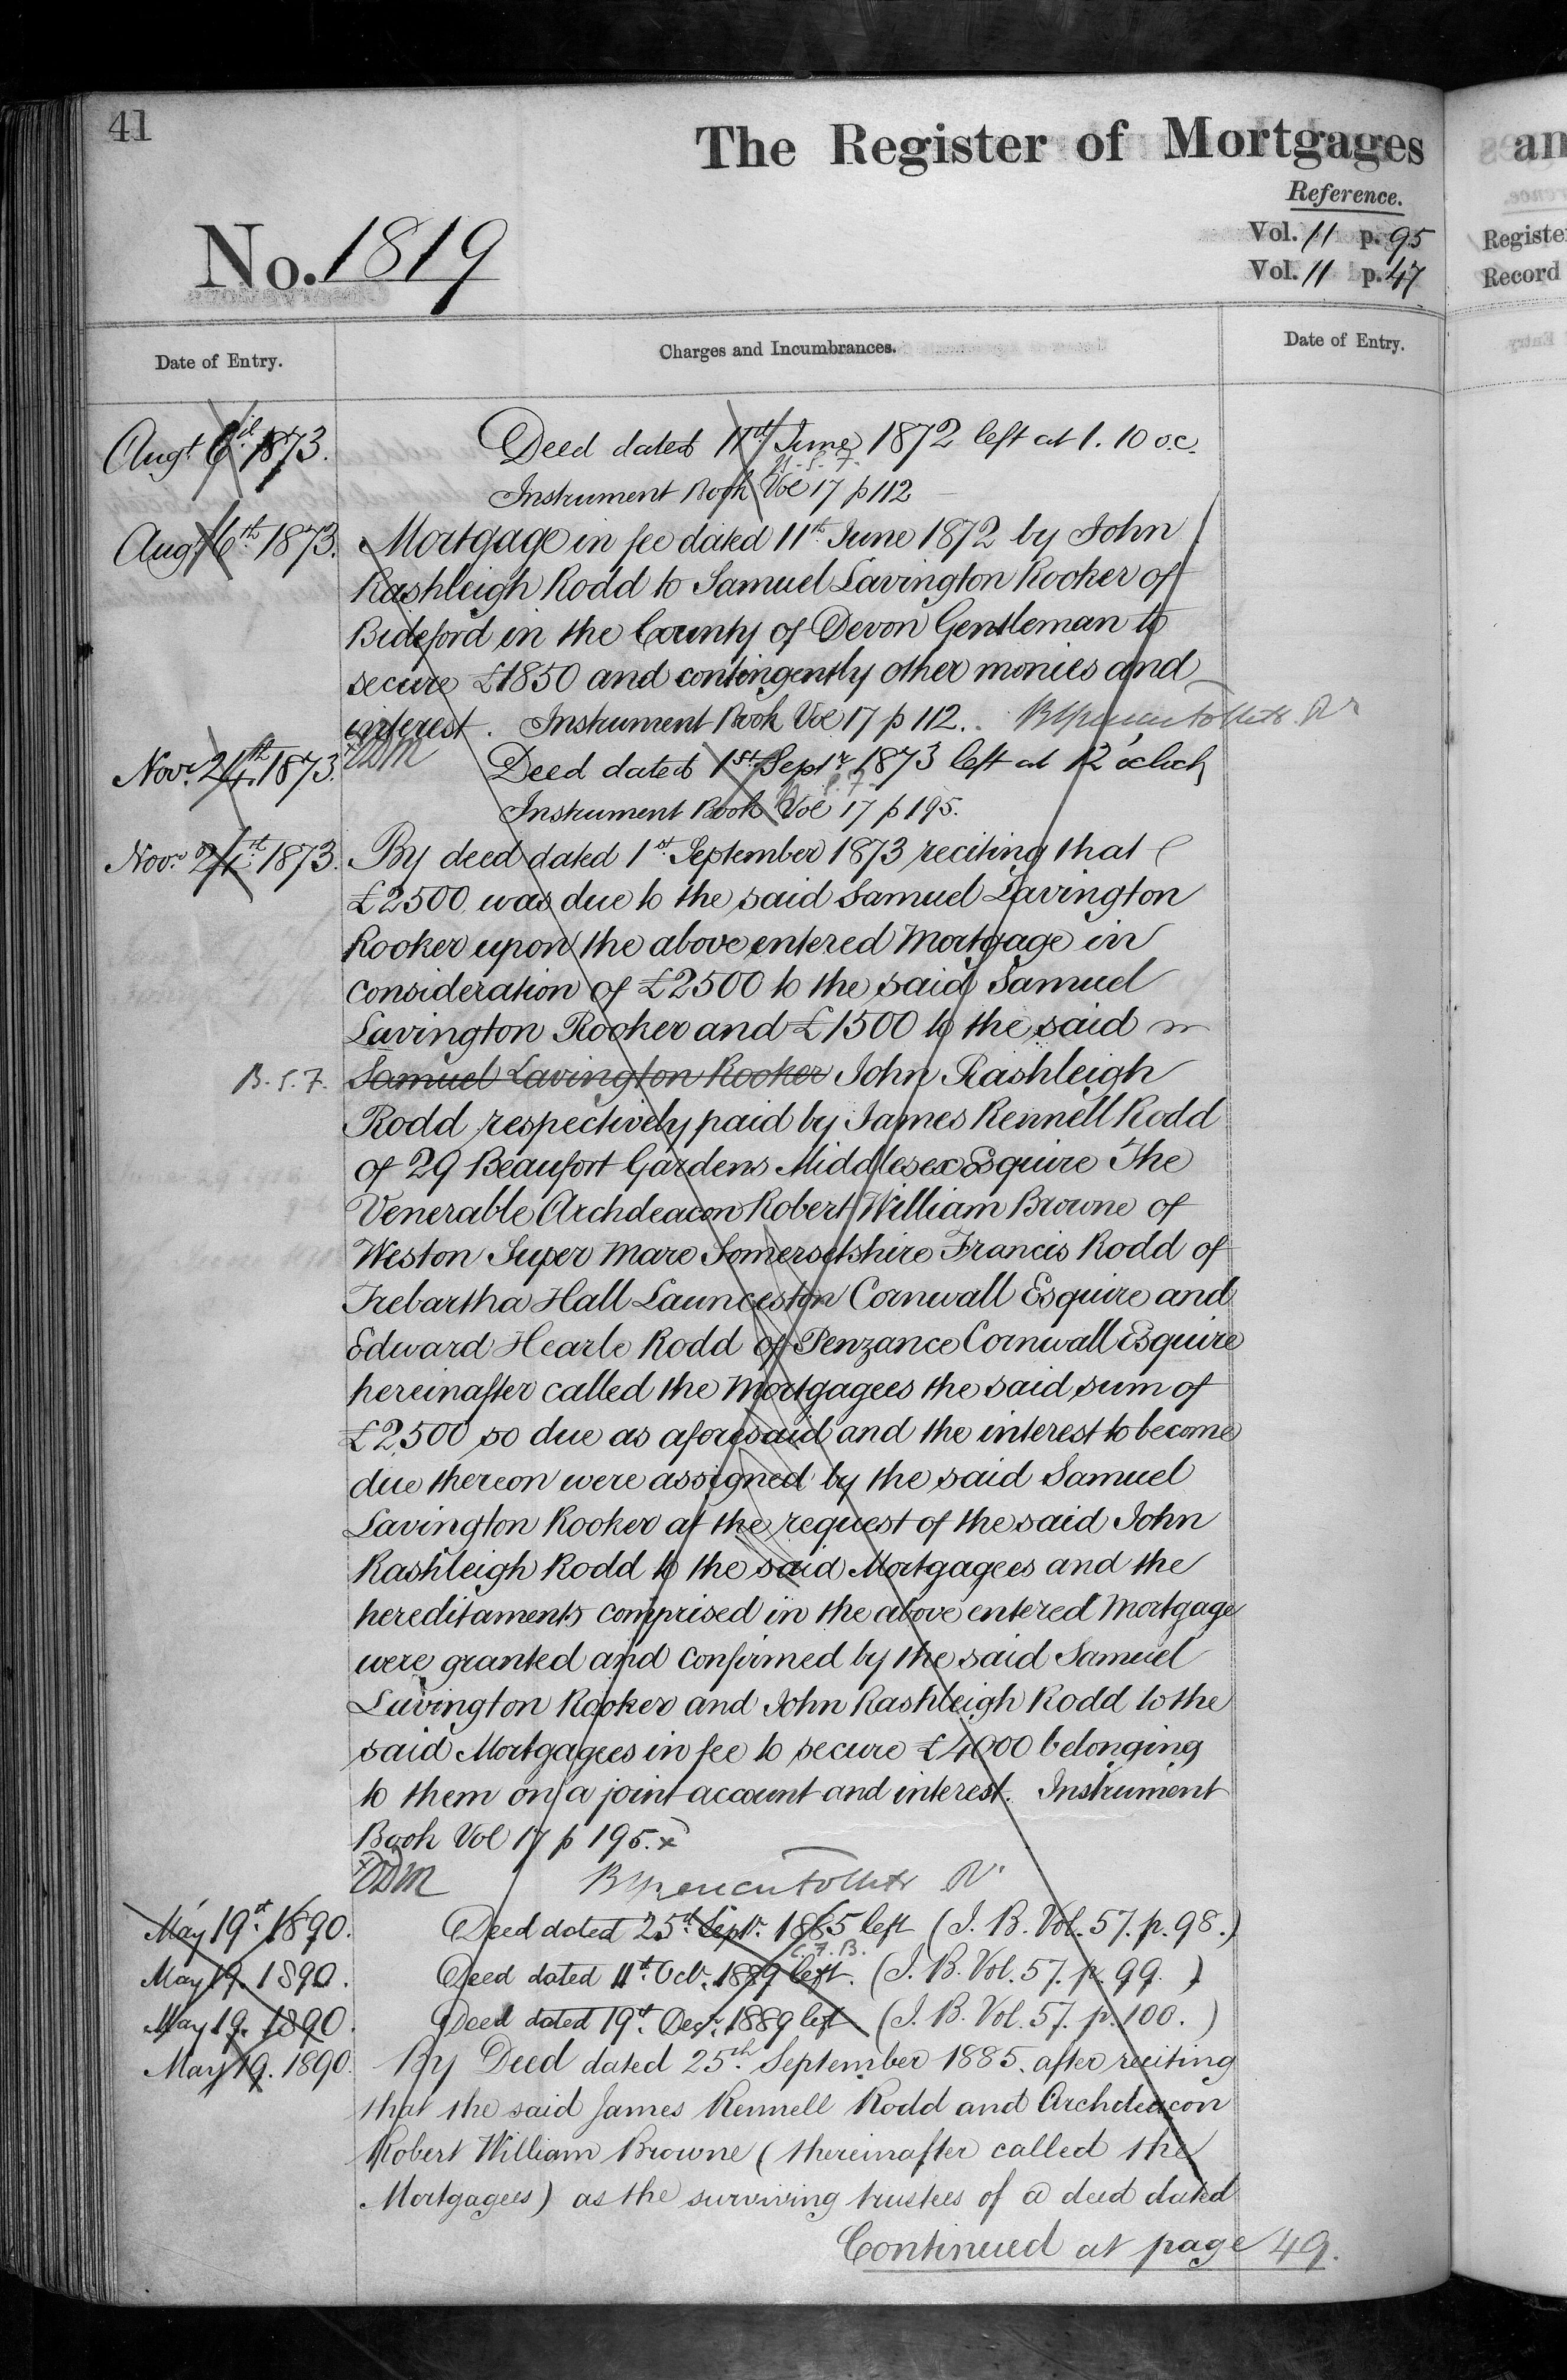 41
The Register of Mortgages
Reference.
No. 1819
Vol. 11 p. 95
Vol. 11 p. 47
Registe
Record
Date of Entry.
Charges and Incumbrances.
Date of Entry.
Augt 6th 1873. Deed dated 11th June 1872 left at 1.10 o.c.
Instrument Book Vol 17 p 112
Augt 6th 1873. Mortgage in fee dated 11th June 1872 by John
Rashleigh Rodd to Samuel Lavington Rooker of
Bideford in the County of Devon Gentleman to
secure £1850 and contingently other monies and
interest. Instrument Book Vol 17 p 112.
Novr. 21st 1873. Deed dated 1st Septr 1873 left at 12 o'clock
Instrument Book Vol 17 p 195.
Novr 21st 1873. By deed dated 1st September 1873 reciting that
£2500 was due to the said Samuel Lavington
Rooker upon the above entered Mortgage in
consideration of £2500 to the said Samuel
Lavington Rooker and £1500 to the said
B.S.F. Samuel Lavington Rooker John Rashleigh
Rodd respectively paid by James Rennell Rodd
of 29 Beaufort Gardens Middlesex Esquire The
Venerable Archdeacon Robert William Browne of
Weston Super Mare Somersetshire Francis Rodd of
Trebartha Hall Launceston Cornwall Esquire and
Edward Hearle Rodd of Penzance Cornwall Esquire
hereinafter called the Mortgagees the said sum of
£2500 so due as aforesaid and the interest to become
due thereon were assigned by the said Samuel
Lavington Rooker at the request of the said John
Rashleigh Rodd to the said Mortgagees and the
hereditaments comprised in the above entered Mortgage
were granted and confirmed by the said Samuel
Lavington Rooker and John Rashleigh Rodd to the
said Mortgagees in fee to secure £4000 belonging
to them on a joint account and interest. Instrument
Book Vol 17 p 195. x
May 19th. 1890. Deed dated 25th Septr. 1885 left (I. B. Vol. 57. p. 98.)
C.F.B.
May 19. 1890. Deed dated 11th. Octr. 1889 left. (I. B. Vol. 57. p. 99.)
May 19. 1890. Deed dated 19th. Decr. 1889 left (I. B. Vol. 57. p. 100.)
May 19. 1890. By Deed dated 25th September 1885. after reciting
that the said James Rennell Rodd and Archdeacon
Robert William Browne (thereinafter called the
Mortgagees) as the surviving trustees of a deed dated
Continued at page 49.